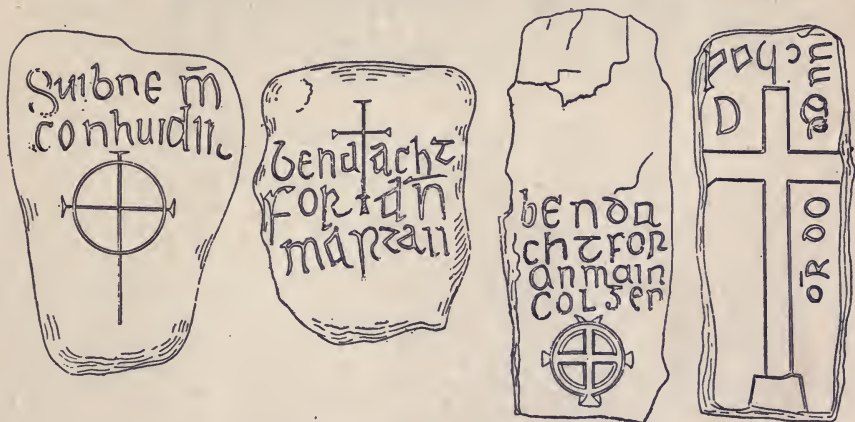 Suibne m̄
conhuidir
bendacht
for an̄
martan
benda
cht for
anmain
colgen
ōr do